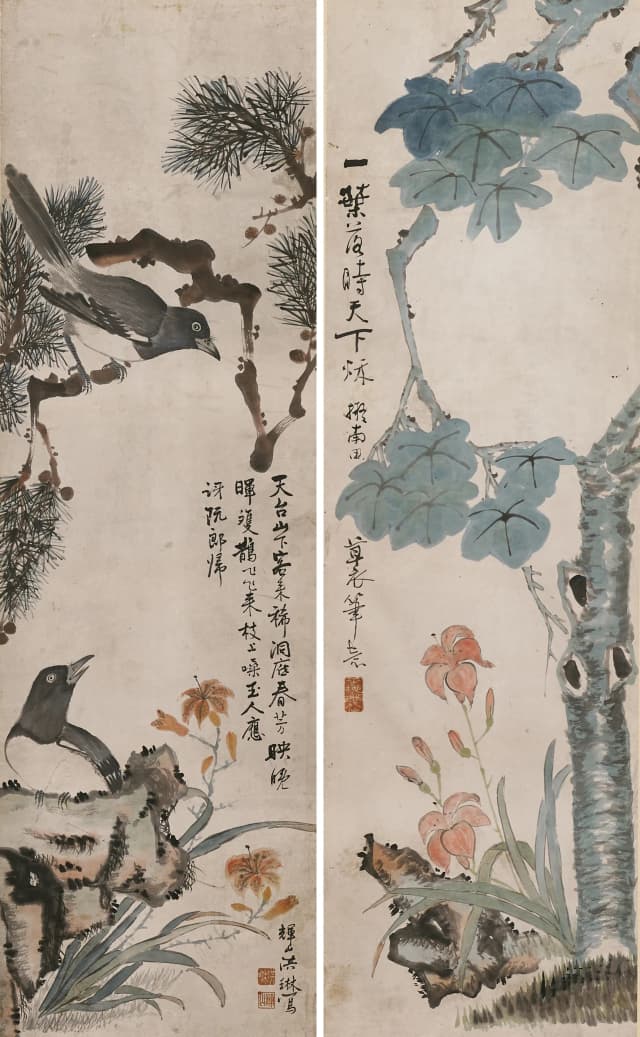 一葉落時天下秌
擬南田
草衣筆意
天台山下客来稀洞庭春芳映晚
暉雙鵲飞来枝上噪玉人應
訝阮郎帰
輝山洪琳寫